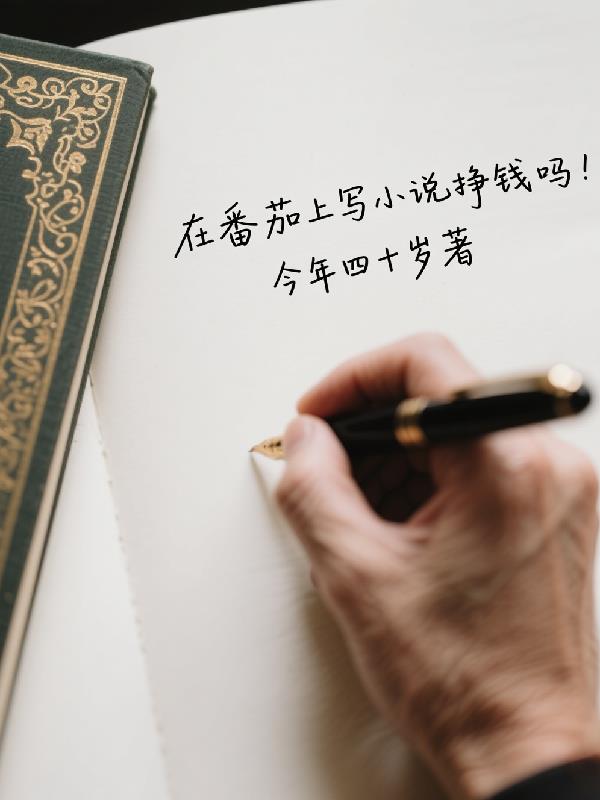 在番茄上写小说挣钱吗！
今年四十岁著